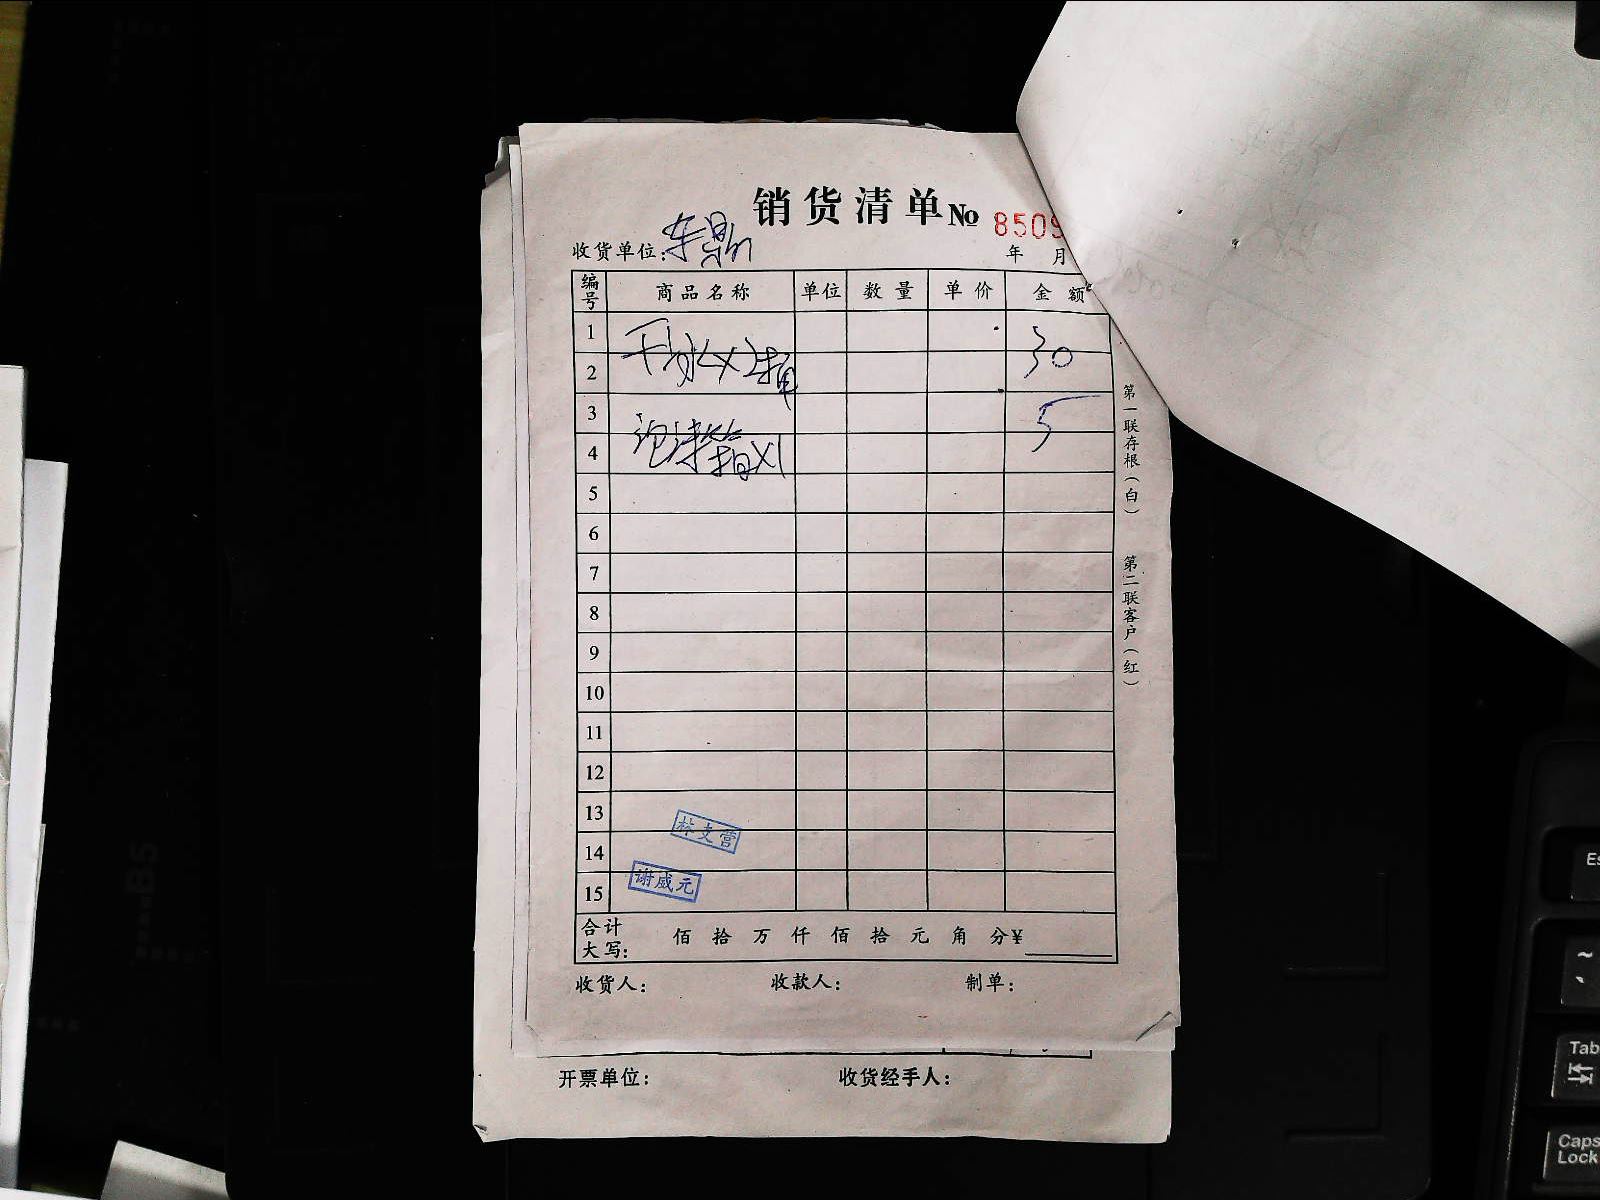 销货清单 № 8509
收货单位: 东鼎
年 月
编号 商品名称 单位 数量 单价 金额
1
2 干冰X1桶 30
3
4 泡沫箱X1 5
5
6
7
8
9
10
11
12
13
14 林支营
15 谢威元
合计大写: 佰 拾 万 仟 佰 拾 元 角 分 ¥
收货人: 收款人: 制单:
第一联存根(白) 第二联客户(红)
开票单位: 收货经手人:
B5
Es
~
Tab
Caps
Lock